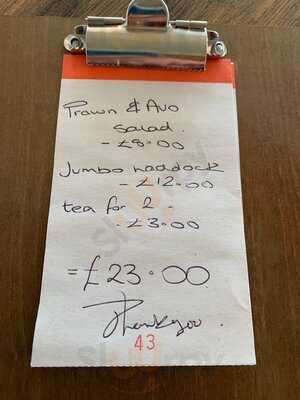 Prawn & Avo
Salad.
- £8.00
Jumbo haddock
- £12.00
tea for 2 -
- £3.00
= £23.00
Thankyou.
43